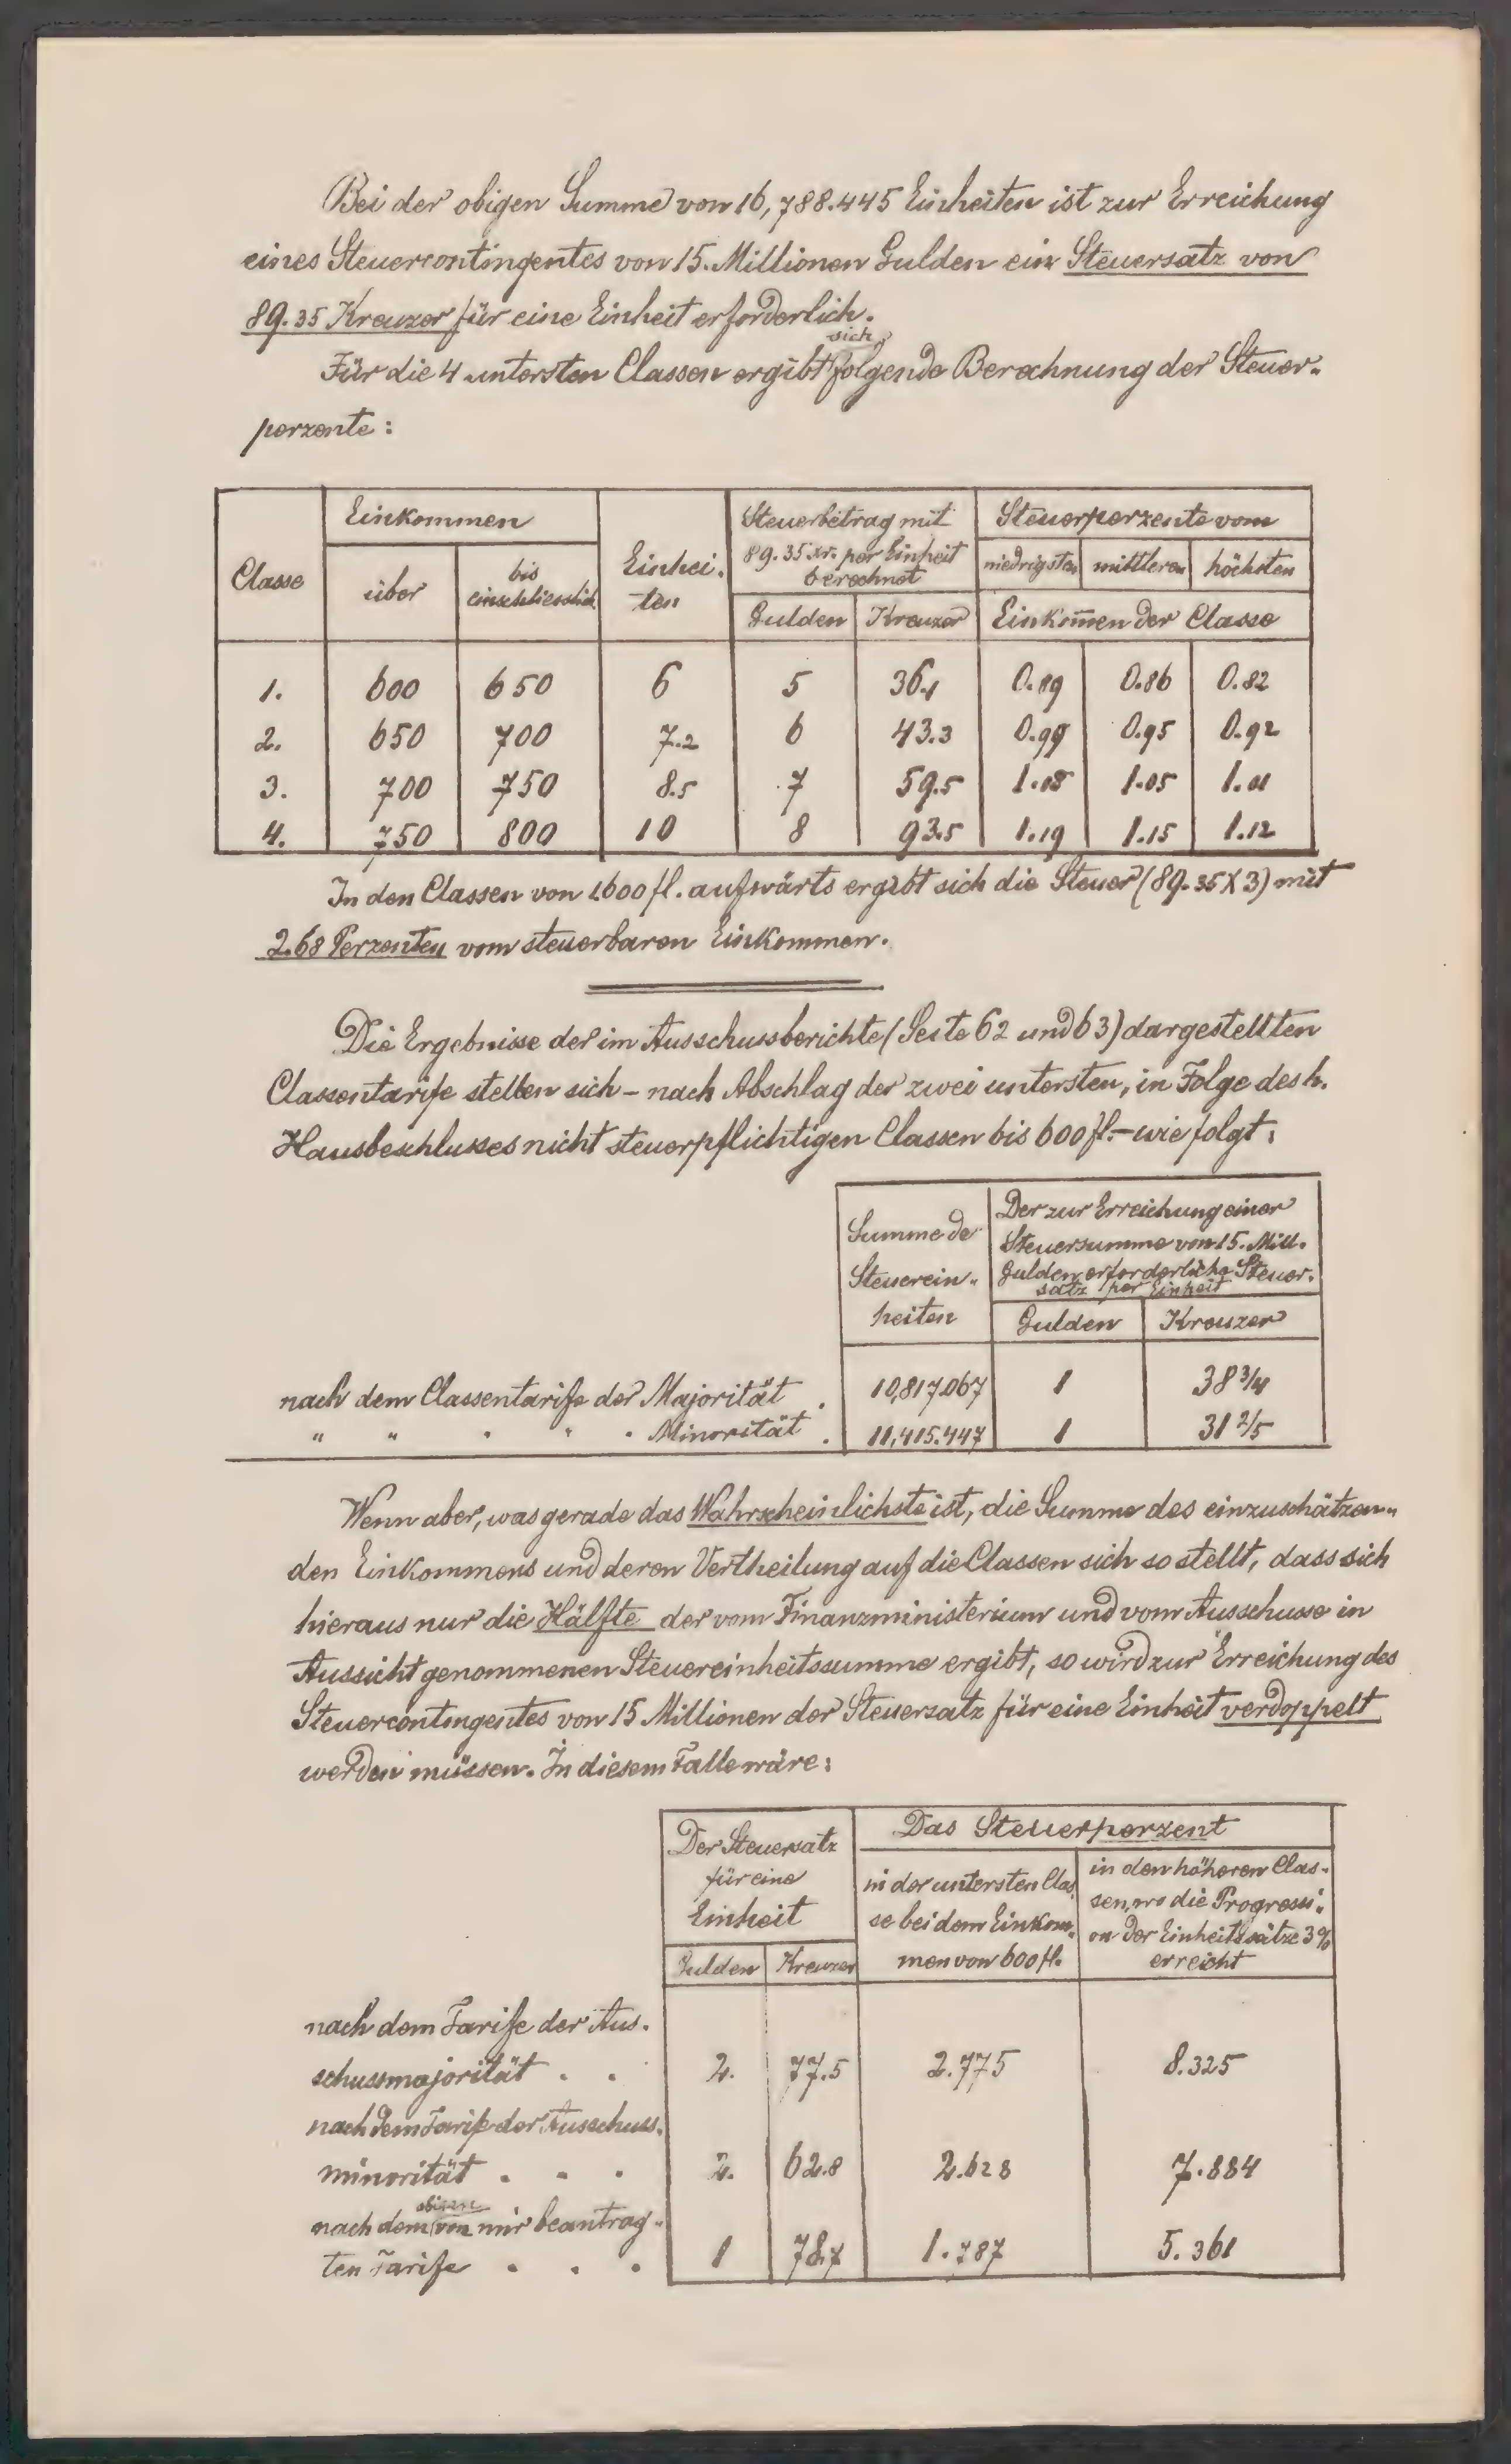 Bei der obigen Summe von 16,788.445 Einheiten ist zur Erreichung
eines Steuercontingentes von 15. Millionen Gulden ein Steuersatz von
89.35 Kreuzer für eine Einheit erforderlich.
sich
Für die 4 untersten Classen ergibt folgende Berechnung der Steuer-
perzente:
Classe
Einkommen
über
bis
einschliesslich
Einhei-
ten
Steuerbetrag mit
89.35 xr. per Einheit
berechnet
Gulden Kreuzer
Steuerperzente vom
niedrigsten mittleren höchsten
Einkom̅en der Classe
1. 600 650 6 5 36.1 0.89 0.86 0.82
2. 650 700 7.2 6 43.3 0.99 0.95 0.92
3. 700 750 8.5 7 59.5 1.08 1.05 1.01
4. 750 800 10 8 93.5 1.19 1.15 1.12
In den Classen von 1600 fl. aufwärts ergibt sich die Steuer (89.35 X 3) mit
2.68 Perzenten vom steuerbaren Einkommen.
Die Ergebnisse der im Ausschussberichte (Seite 62 und 63) dargestellten
Classentarife stellen sich - nach Abschlag der zwei untersten, in Folge des h.
Hausbeschlusses nicht steuerpflichtigen Classen bis 600 fl. - wie folgt:
Summe de
Steuerein-
heiten
Der zur Erreichung einer
Steuersumme von 15. Mill.
Gulden erforderliche Steuer-
satz per Einheit
Gulden Kreuzer
nach dem Classentarife der Majorität . 10,817.067 1 38 3/4
" " " " " Minorität . 11,415.447 1 31 2/5
Wenn aber, was gerade das Wahrscheinlichste ist, die Summe des einzuschätzen-
den Einkommens und deren Vertheilung auf die Classen sich so stellt, dass sich
hieraus nur die Hälfte der vom Finanzministerium und vom Ausschusse in
Aussicht genommenen Steuereinheitssumme ergibt, so wird zur Erreichung des
Steuercontingentes von 15 Millionen der Steuersatz für eine Einheit verdoppelt
werden müssen. In diesem Falle wäre:
Der Steuersatz
für eine
Einheit
Gulden Kreuzer
Das Steuerperzent
in der untersten Clas-
se bei dem Einkom-
men von 600 fl.
in den höheren Clas-
sen, wo die Progressi-
on der Einheitssätze 3%
erreicht
nach dem Tarife der Aus-
schussmajorität . . 2. 77.5 2.775 8.325
nach dem Tarife der Ausschuss-
minorität . . . 2. 62.8 2.628 7.884
obigen
nach dem von mir beantrag-
ten Tarife . . . 1 78.7 1.787 5.361